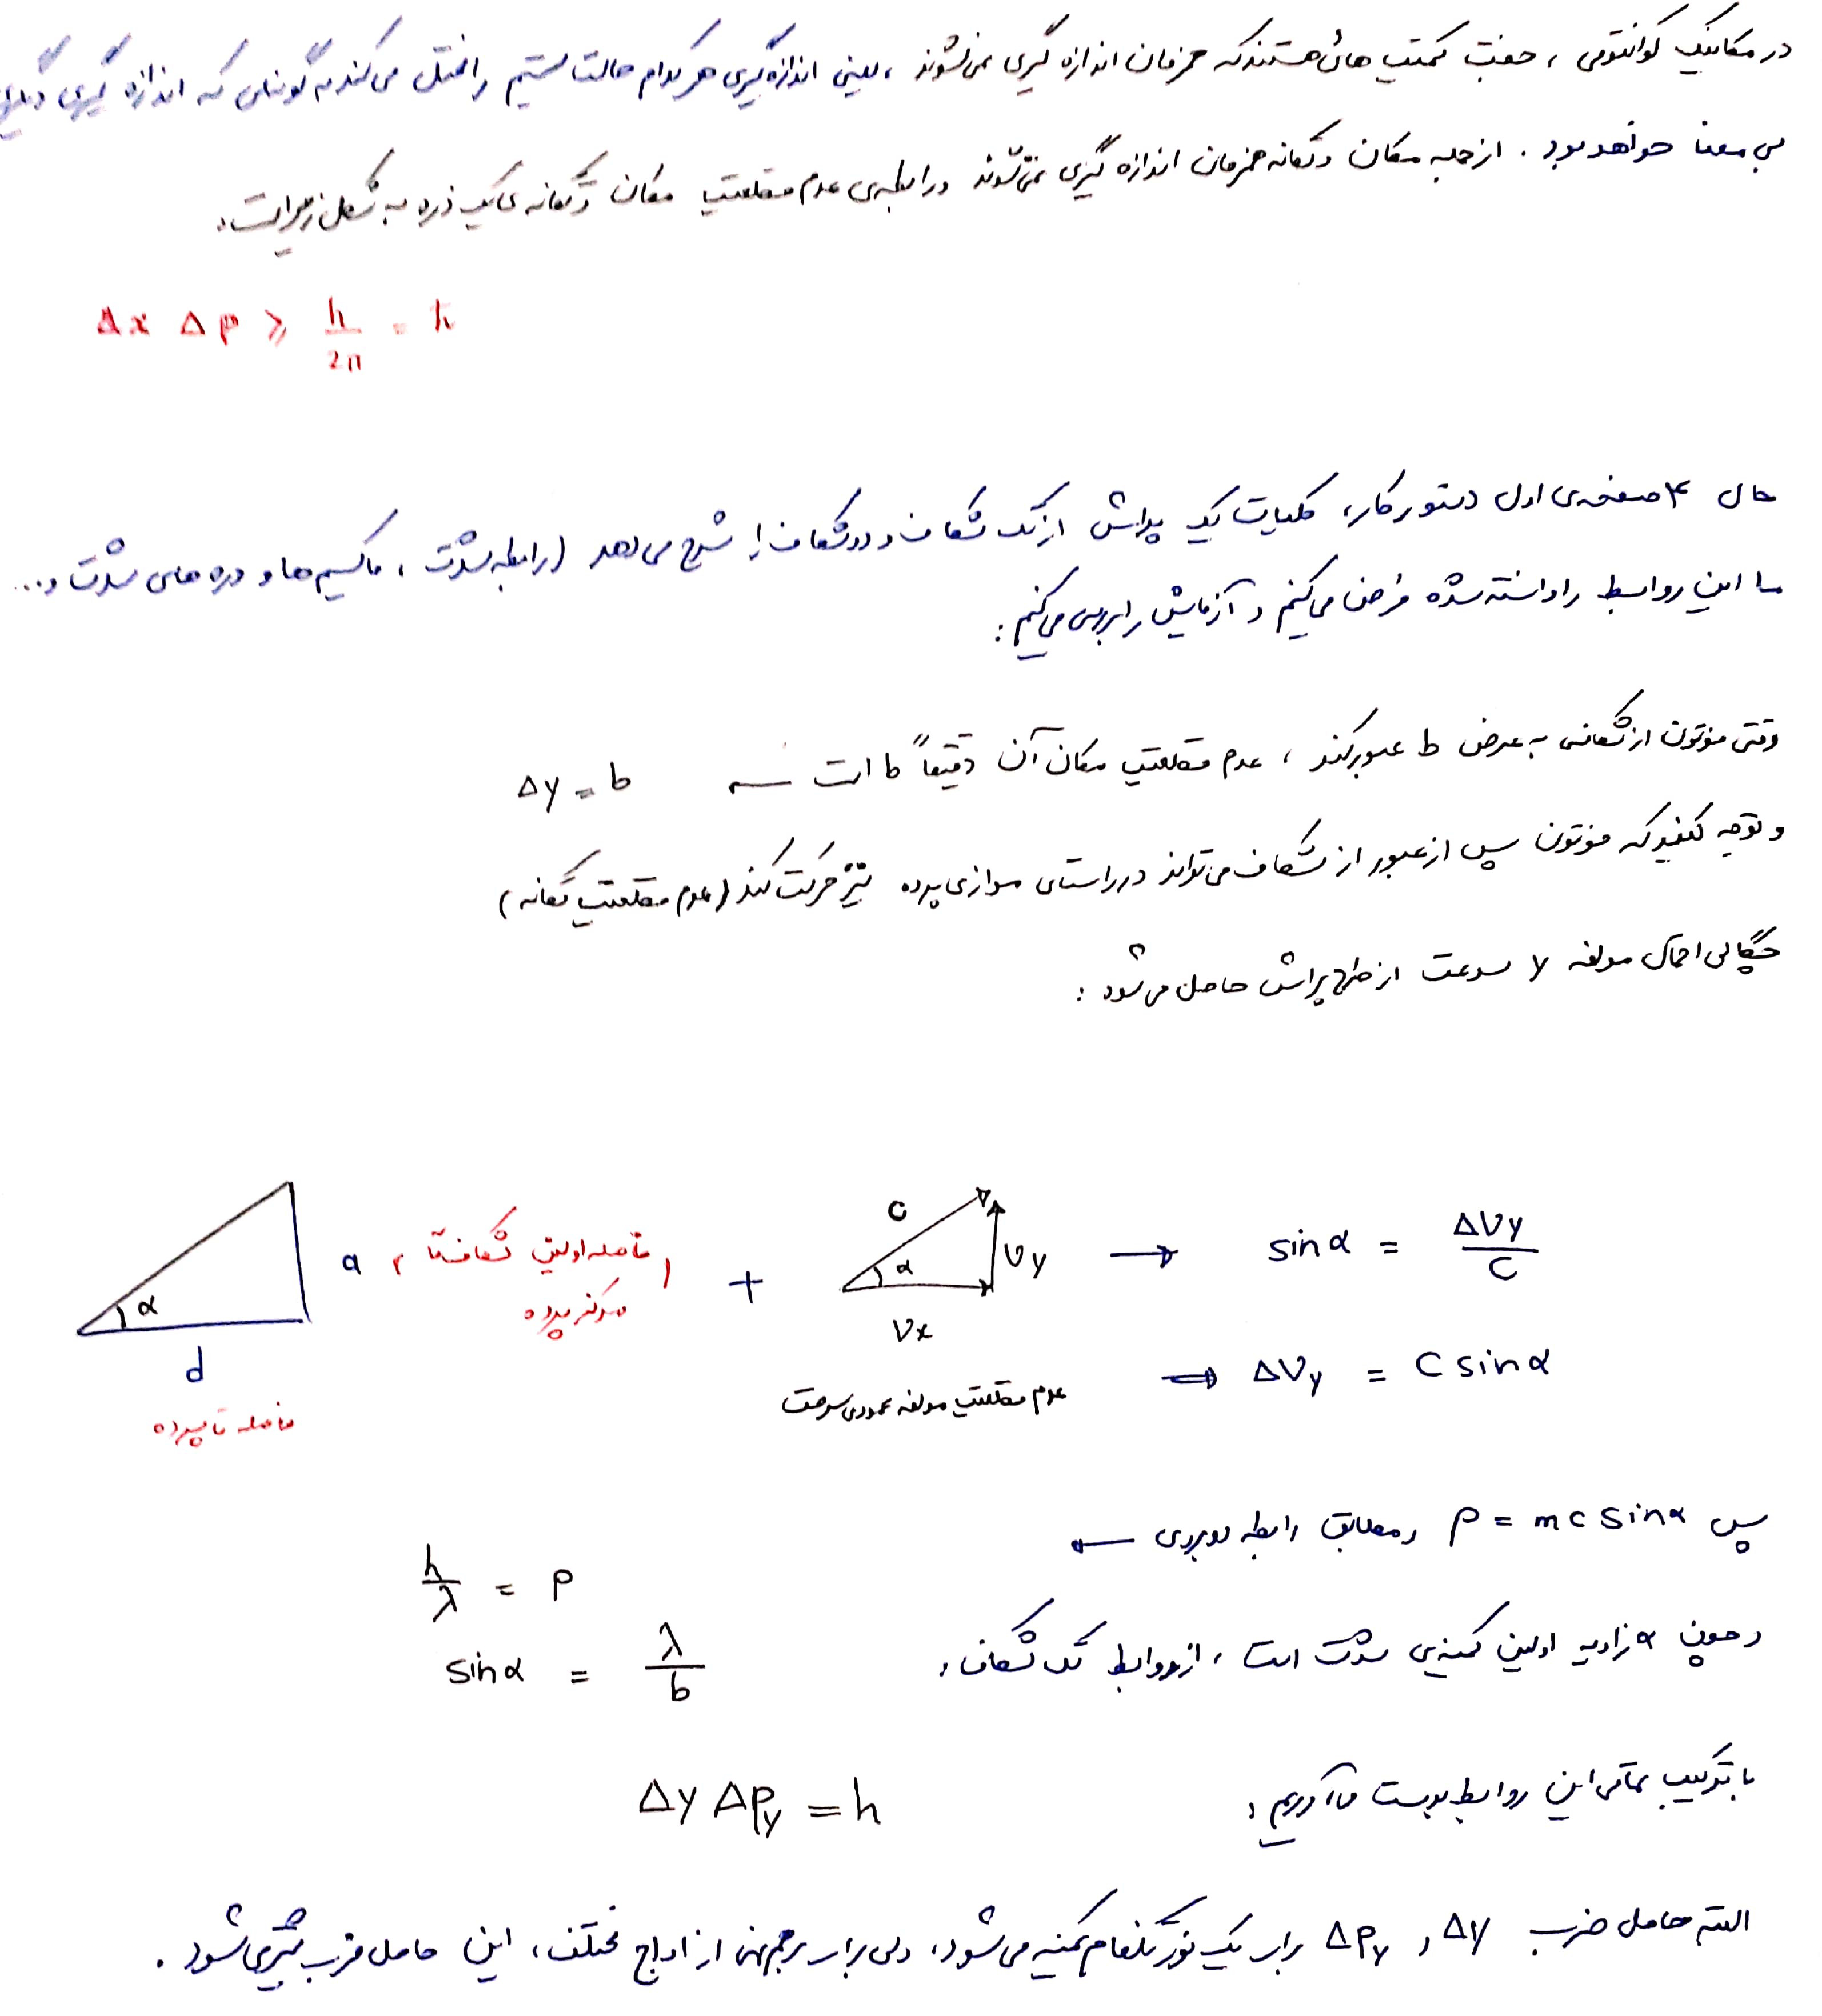 در مکانیک کوانتومی ، جفت کمیت هائی هستند که همزمان اندازه گیری نمی‌شوند ، یعنی اندازه‌گیری هر کدام حالت سیستم را مختل می‌کند به گونه‌ای که اندازه گیری دیگری
بی معنا خواهد بود . از جمله مکان و تکانه همزمان اندازه گیری نمی‌شوند و رابطه‌ی عدم قطعیت مکان و تکانه‌ی یک ذره به شکل زیر است :
Δx Δp ≥ h/2π = ħ
حال ۴ صفحه‌ی اول دستور کار، کلیات یک پراش از تک شکاف و دو شکاف را شرح می‌دهد (رابطه شدت ، ماکسیم ها و دره های شدت و...
ما این روابط را دانسته شده فرض می‌کنیم و آزمایش را بررسی می‌کنیم :
وقتی فوتون از شکافی به عرض b عبور کند ، عدم قطعیت مکان آن دقیقاً b است → Δy = b
و توجه کنید که فوتون پس از عبور از شکاف می‌تواند در راستای موازی پرده نیز حرکت کند (عدم قطعیت تکانه)
چگالی احتمال مولفه y سرعت از طرح پراش حاصل می‌شود :
a (فاصله اولین شکاف تا
مرکز پرده
α
d
فاصله تا پرده
+
c
α
Vy
Vx
→ sinα = ΔVy/c
⇒ ΔVy = c sinα
عدم قطعیت مولفه عمودی سرعت
پس p = mc sinα و مطابق رابطه دوبروی ←
h/λ = p
و چون α زاویه اولین کمینه‌ی شدت است ، از روابط تک شکاف :
sinα = λ/b
با ترکیب تمامی این روابط بدست می‌آوریم :
Δy Δpy = h
البته حاصل ضرب Δy و Δpy برای یک نور تکفام کمینه می‌شود، ولی برای برهم نهی از امواج مختلف، این حاصل ضرب بیشتر می‌شود .